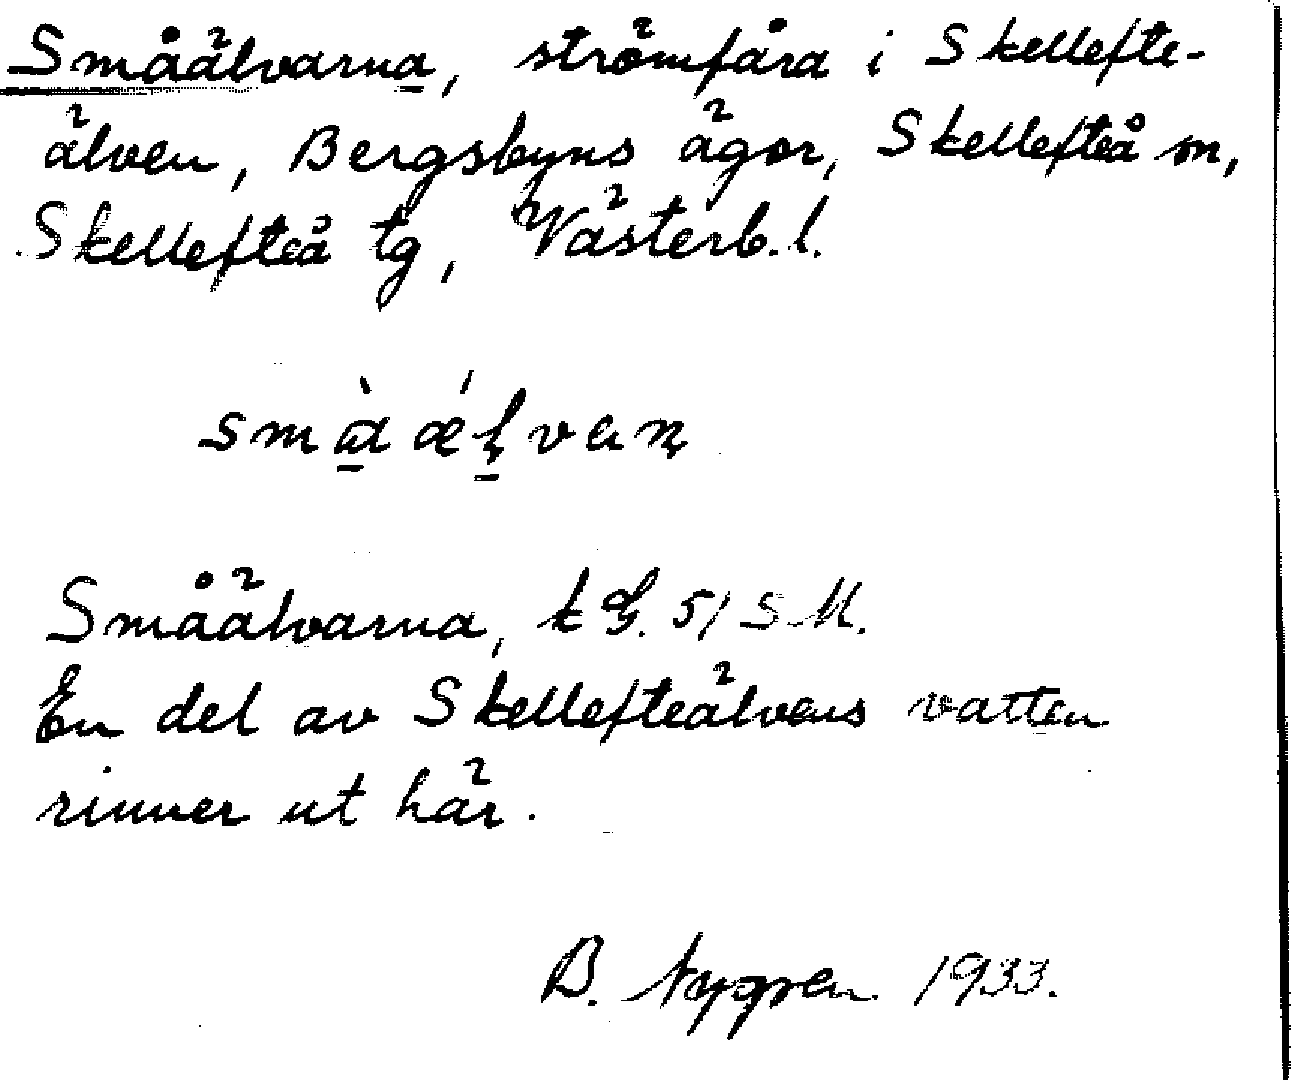 Småälvarna, strömfåra i Skellefte-
älven, Bergsbyns ägor, Skellefteå sn,
Skellefteå tg, Västerb. l.
småælvan
Småälvarna, t G. 51 S M.
En del av Skellefteälvens vatten
rinner ut här.
B. Nygren 1933.